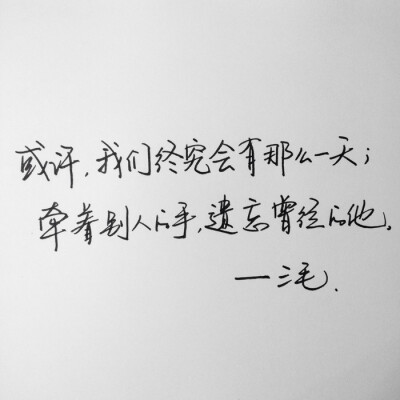 或许，我们终究会有那么一天；
牵着别人的手，遗忘曾经的他。
—三毛.